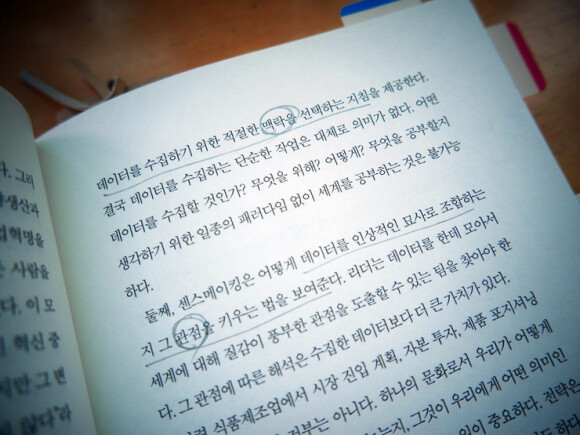 다. 그러
생산과
업혁명을
는 사람을
다. 이 모
혁신 중
지만 그 변
데이터를 수집하기 위한 적절한 맥락을 선택하는 지침을 제공한다.
결국 데이터를 수집하는 단순한 작업은 대체로 의미가 없다. 어떤
데이터를 수집할 것인가? 무엇을 위해? 어떻게? 무엇을 공부할지
생각하기 위한 일종의 패러다임 없이 세계를 공부하는 것은 불가능
하다.
둘째, 센스메이킹은 어떻게 데이터를 인상적인 묘사로 조합하는
지 그 관점을 키우는 법을 보여준다. 리더는 데이터를 한데 모아서
세계에 대해 질감이 풍부한 관점을 도출할 수 있는 팀을 찾아야 한
다. 그 관점에 따른 해석은 수집한 데이터보다 더 큰 가치가 있다.
식품제조업에서 시장 진입 계획, 자본 투자, 제품 포지셔닝
전부는 아니다. 하나의 문화로서 우리가 어떻게
는지, 그것이 우리에게 어떤 의미인
중요하다. 전략은